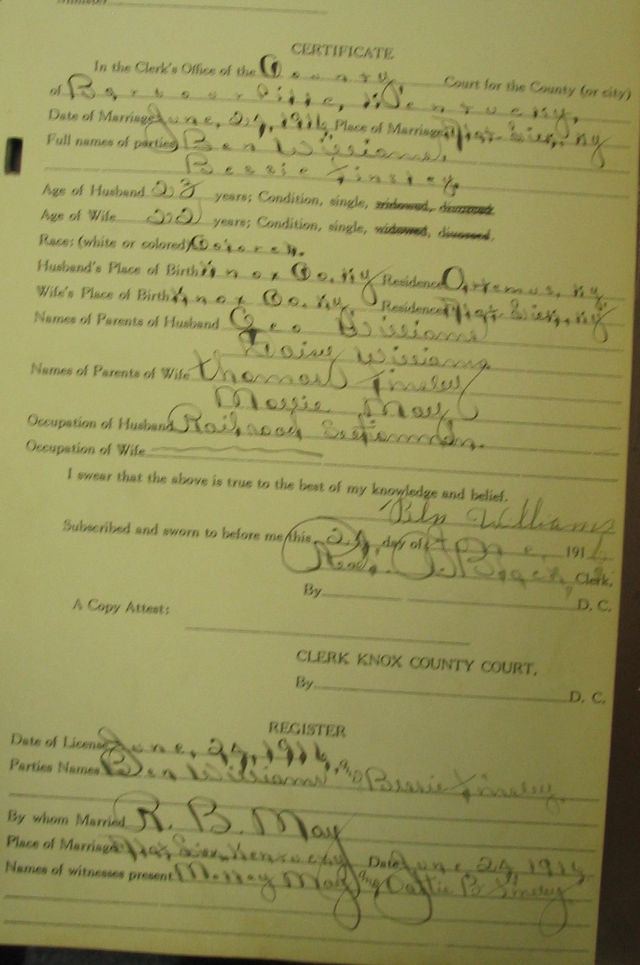 CERTIFICATE
In the Clerk's Office of the County Court for the County (or city)
of Barbourville, Kentucky,
Date of Marriage June, 24, 1916, Place of Marriage Flat Lick, Ky
Full names of parties Ben Williams,
Bessie Tinsley,
Age of Husband 23 years; Condition, single, widowed, divorced
Age of Wife 22 years; Condition, single, widowed, divorced,
Race: (white or colored) Colored.
Husband's Place of Birth Knox Co. Ky Residence Artemus, Ky
Wife's Place of Birth Knox Co. Ky Residence Flat Lick, Ky
Names of Parents of Husband Geo Williams
Williams
Names of Parents of Wife Thomas Tinsley
Mollie May
Occupation of Husband Railroad Sectionman.
Occupation of Wife
I swear that the above is true to the best of my knowledge and belief.
Ben Williams
Subscribed and sworn to before me this, 24, day of June, 191
Clerk.
By D. C.
A Copy Attest:
CLERK KNOX COUNTY COURT.
By D. C.
REGISTER
Date of License June, 24, 1916,
Parties Names Ben Williams and Bessie Tinsley.
By whom Married R. B. May
Place of Marriage Flat Lick, Kentucky Date June 24, 1916
Names of witnesses present May and B Tinsley